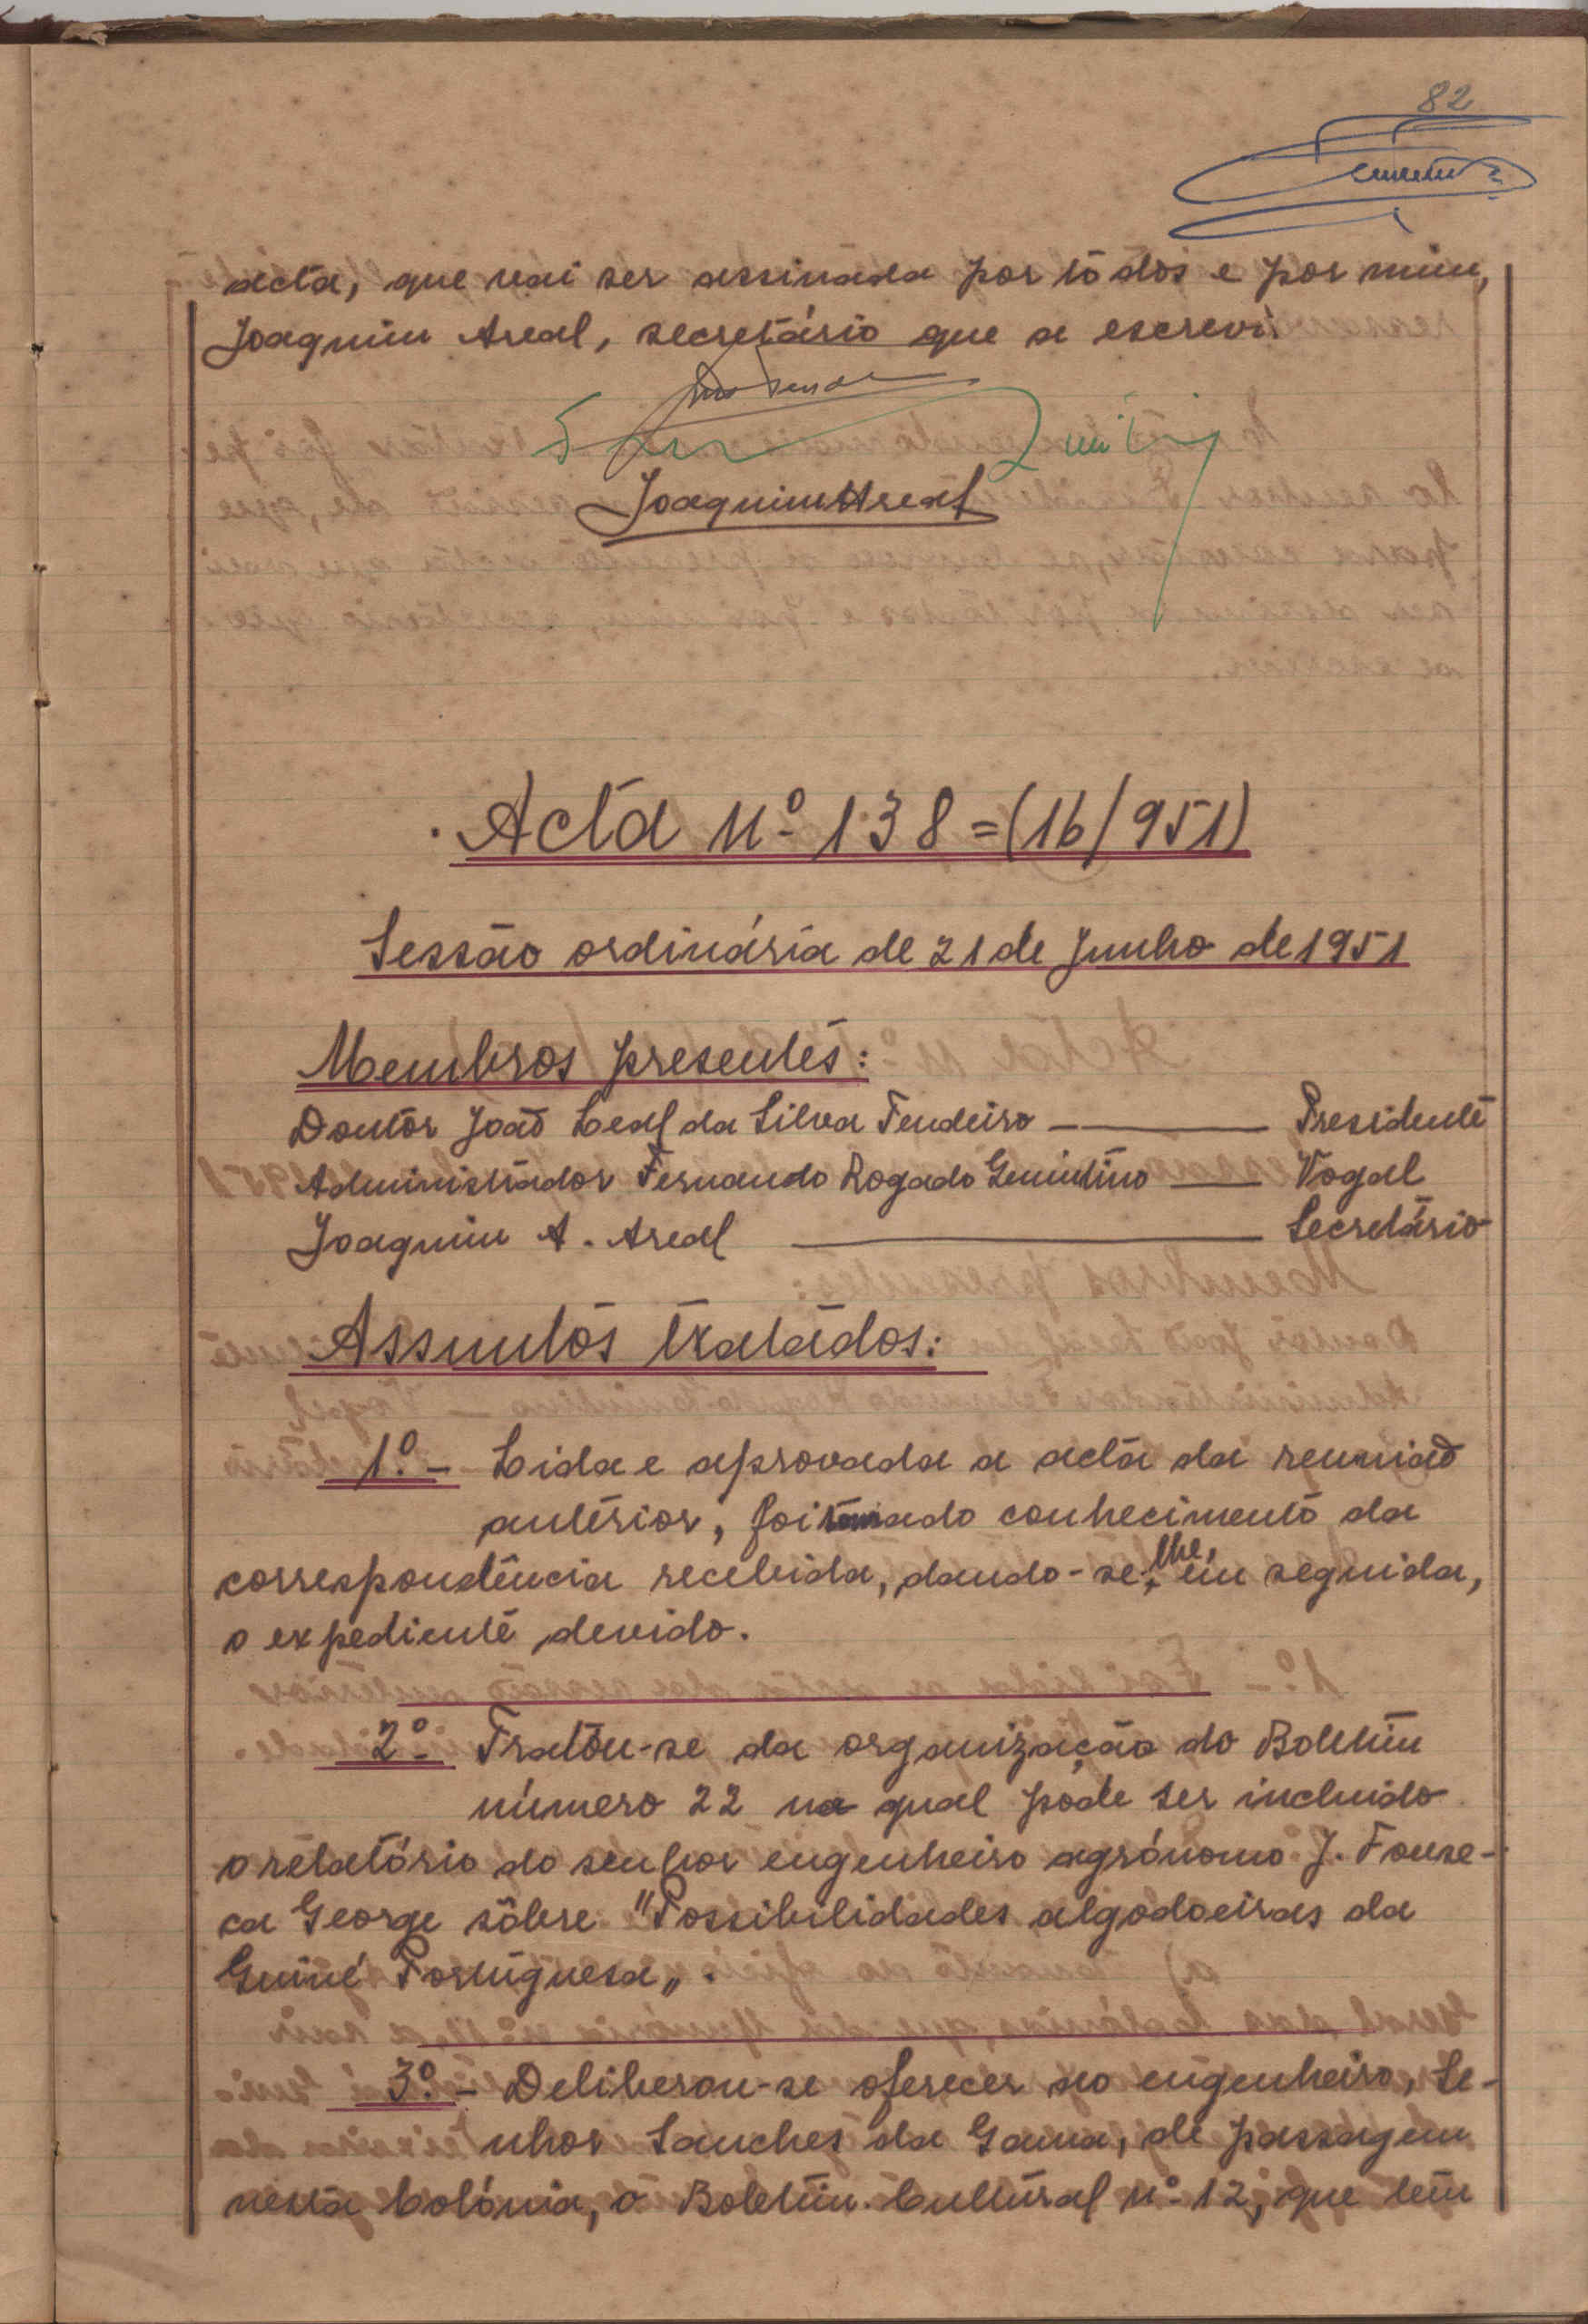 82
acta, que vai ser assinada por todos e por mim,
Joaquim Areal, secretário que a escrevi
Joaquim Areal
Acta nº 138=(16/951)
Sessão ordinária de 21 de Junho de 1951
Membros presentes:
Doutor João Leal da Silva Tendeiro — Presidente
Administrador Fernando Rogado Quintino — Vogal
Joaquim A. Areal — Secretário
Assuntos tratados:
1º.- Lida e aprovada a acta da reunião
anterior, foi tomado conhecimento da
correspondência recebida, dando-se-lhe, em seguida,
o expediente devido.
2º- Tratou-se da organização do Boletim
número 22 na qual pode ser incluido
o relatório do senhor engenheiro agrónomo J. Fonse-
ca George sôbre "Possibilidades algodoeiras da
Guiné Portuguesa".
3º.- Deliberou-se oferecer ao engenheiro, Se-
nhor Sanches da Gama, de passagem
nesta Colónia, o Boletim Cultural nº 12, que tem